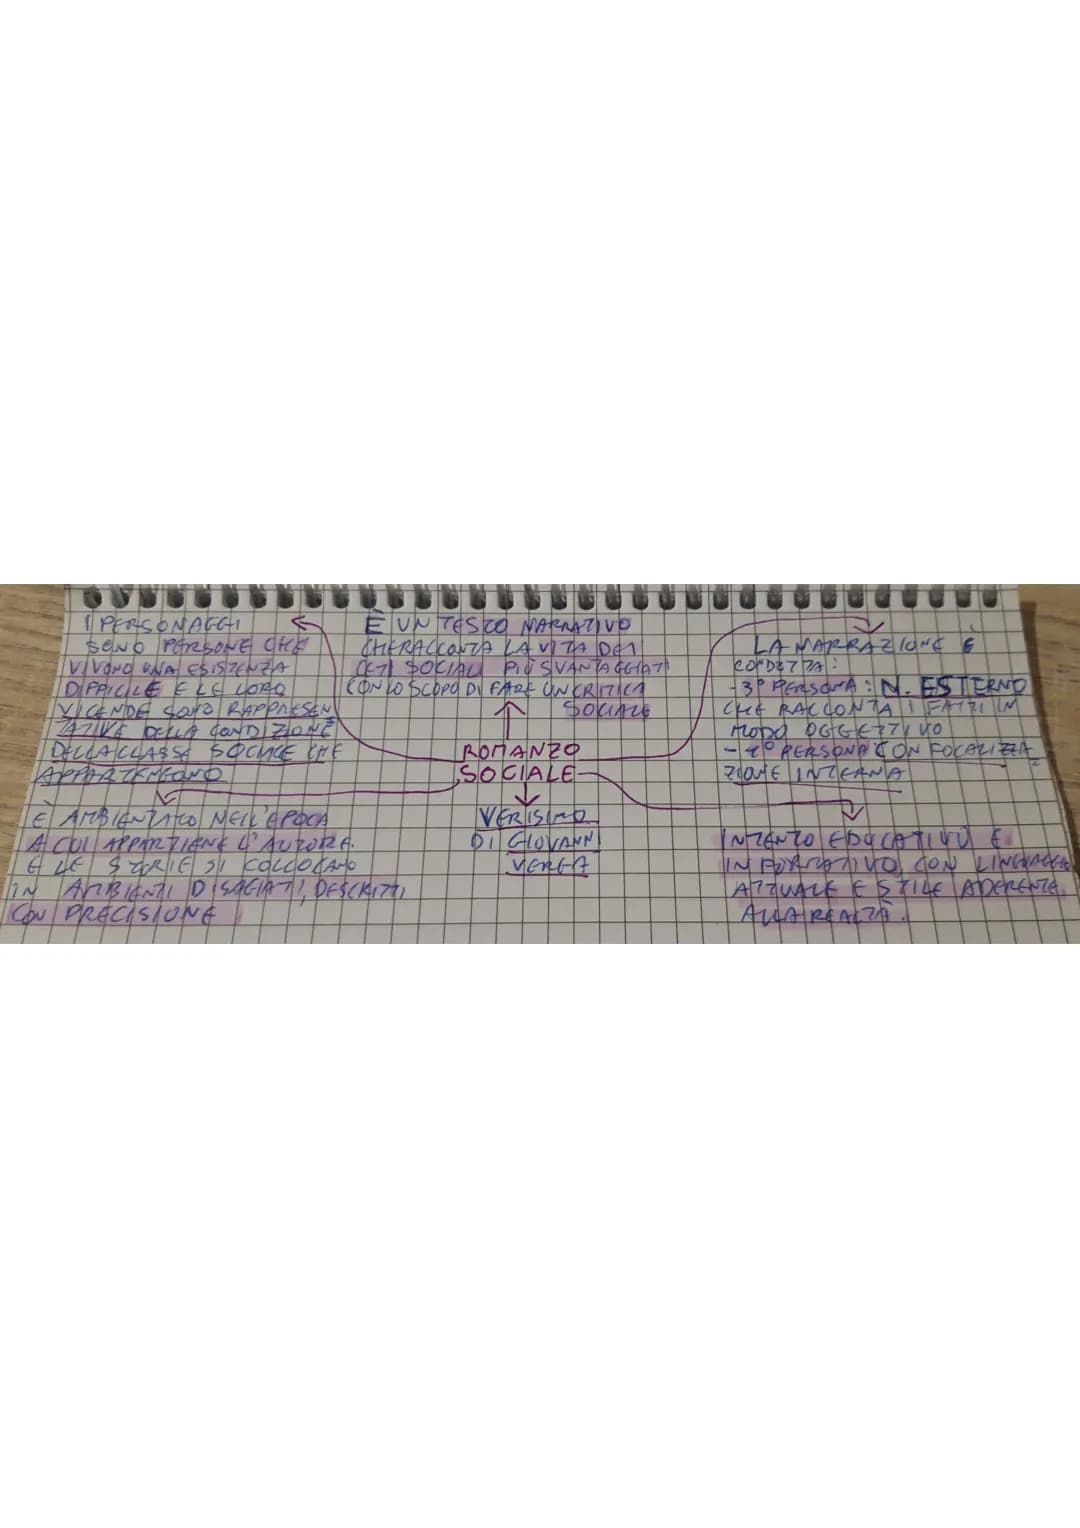 I PERSONAGGI
SONO PERSONE CHE
VIVONO UNA ESISTENZA
DIFFICILE E LE LORO
VICENDE SONO RAPPRESEN
TATIVE DELLA CONDIZIONE
DELLA CLASSE SOCIALE CHE
APPARTENGONO
È UN TESTO NARRATIVO
CHE RACCONTA LA VITA DEI
CETI SOCIALI PIÙ SVANTAGGIATI
CON LO SCOPO DI FARE UN CRITICA
SOCIALE
LA NARRAZIONE È
CONDOTTA:
- 3° PERSONA: N. ESTERNO
CHE RACCONTA I FATTI IN
MODO OGGETTIVO
- 1° PERSONA CON FOCALIZZA
ZIONE INTERNA
ROMANZO
SOCIALE
È AMBIENTATO NELL'EPOCA
A CUI APPARTIENE L'AUTORE.
E LE STORIE SI COLLOCANO
IN AMBIENTI DISAGIATI, DESCRITTI
CON PRECISIONE
VERISIMO
DI GIOVANNI
VERGA
INTENTO EDUCATIVO E
INFORMATIVO, CON LINGUAGGIO
ATTUALE E STILE ADERENTE
ALLA REALTÀ.